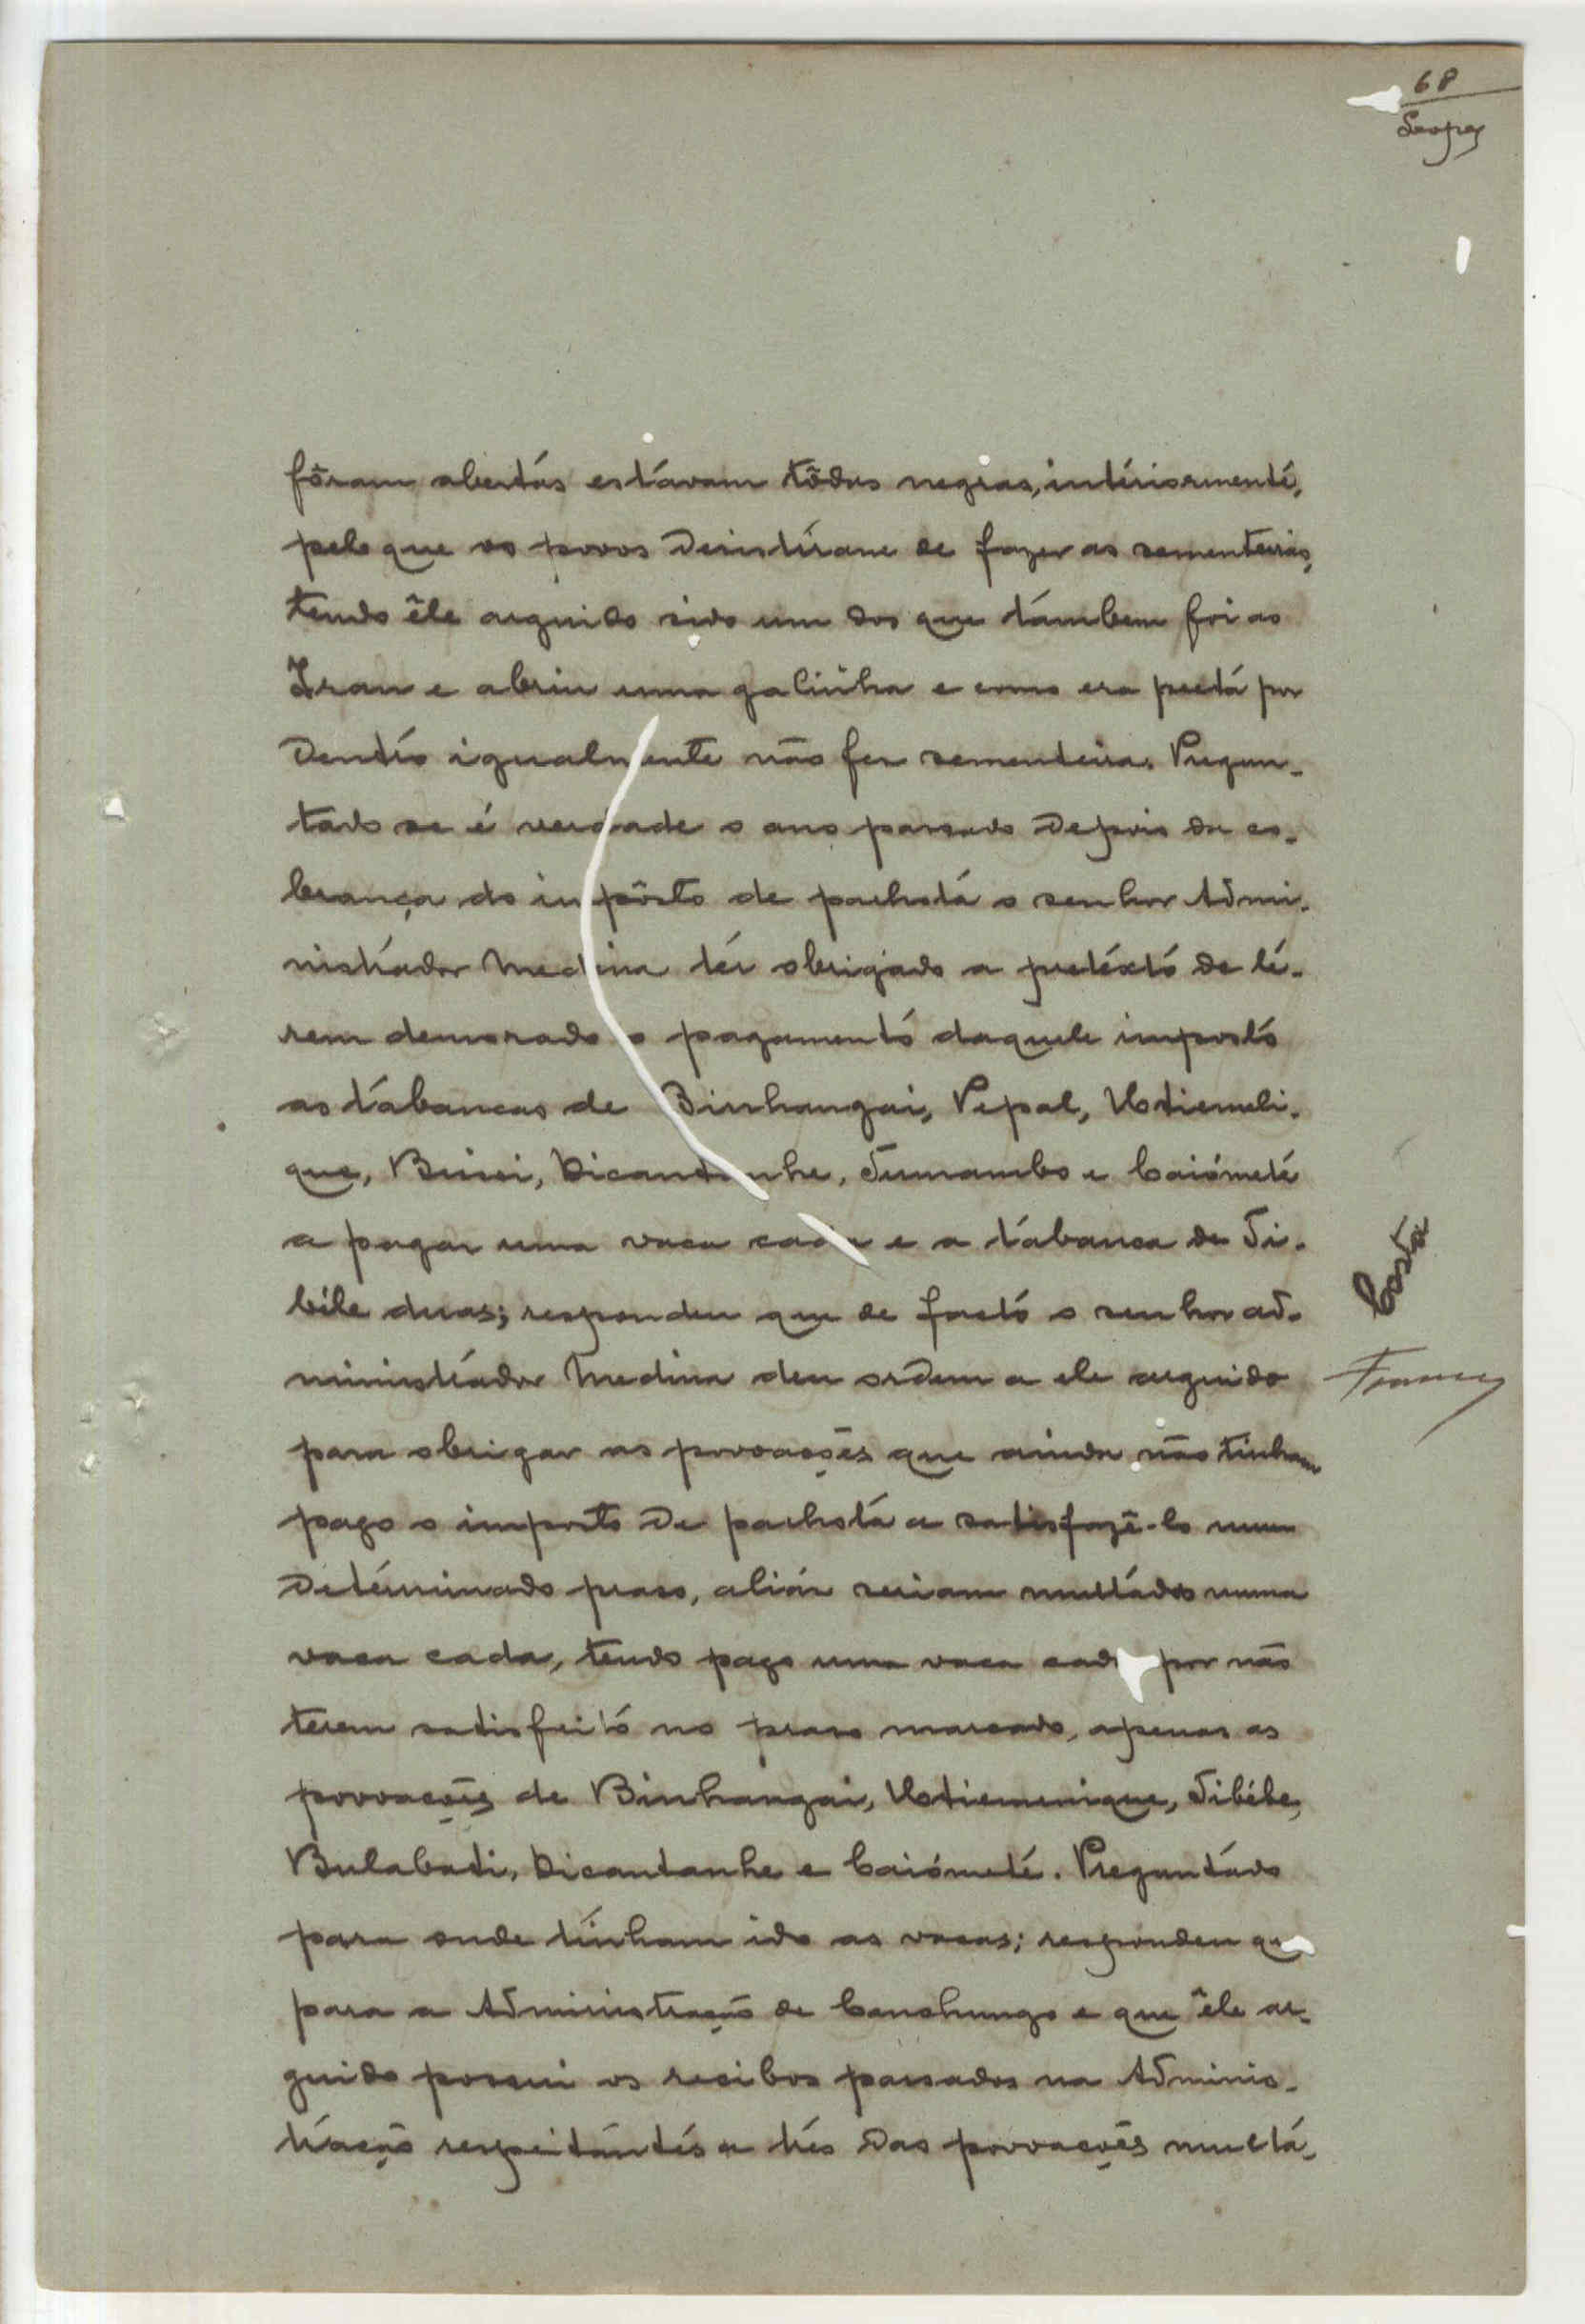 68
Lopes
fôram abertás estávam tôdas negras, intériormenté,
pelo que os povos desistíram de fazer as sementeiras,
tendo êle arguido sido um dos que támbem foi ao
Iran e abriu uma galinha e como era pretá por
dentro igualmente não fez sementeira. Pregun-
tado se é verdade o ano passado depois da co-
brança do impôsto de palhotá o senhor Admi-
nistrádor Medina tér obrigado a pretéxtó de té-
rem demorado o pagamentó daquele impostó
as tábancas de Binhangai, Pepal,
que, Bissi, Dicantanhe, Tumambo e Caiómeté
a pagar uma vaca cada e a tábanca de Ti-
béle duas; respondeu que de factó o senhor ad-
ministrádor Medina deu ordem a ele arguido
para obrigar as povoações que ainda não tinham
pago o imposto de palhotá a satisfazê-lo num
detérminado praso, aliás seriam multádos numa
vaca cada, tendo pago uma vaca cada por não
terem satisfeitó no praso marcado, apenas as
povoações de Binhangai, Tibéle,
Bulabati, Dicantanhe e Caiómeté. Preguntádo
para onde tínham ido as vacas; respondeu que
para a Administração de Canchungo e que êle ar-
guido possui os recibos passados na Adminis-
tráção respeitántés a trés das povoações multá-
Costa